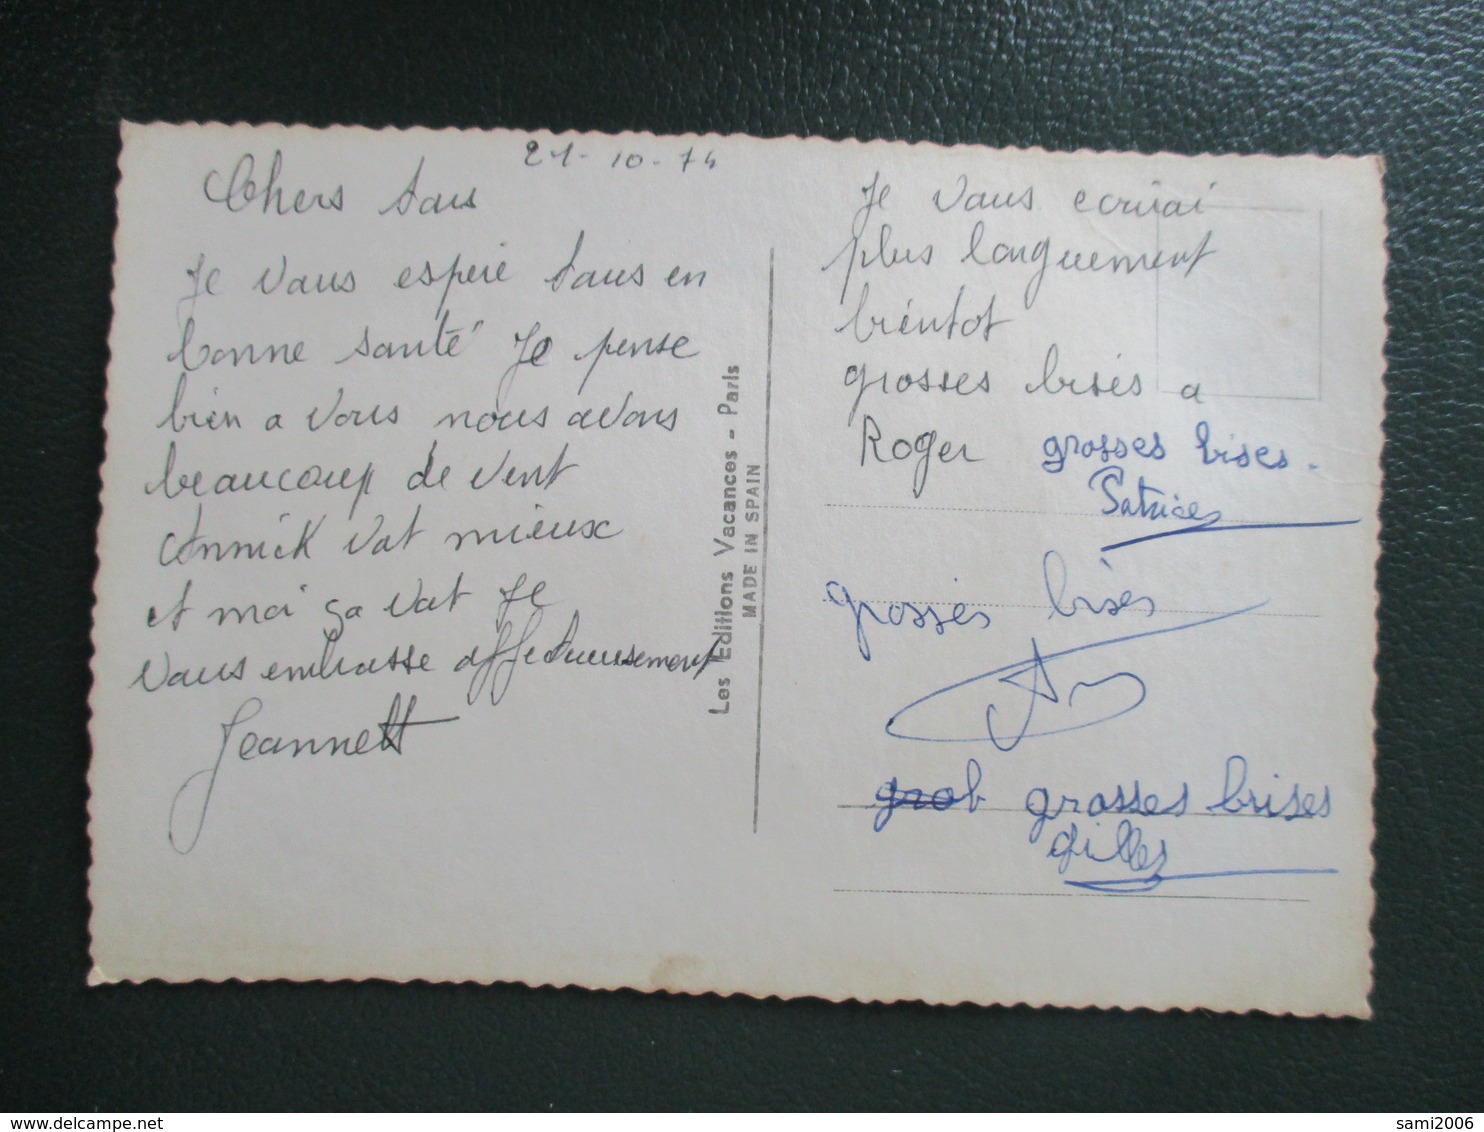 21-10-74
Chers tous
Je vous espere tous en
bonne santé Je pense
bien a vous nous avons
beaucoup de vent
Annick vat mieux
et moi ça vat Je
vous embrasse affectueusement
Jeannett
Les Editions Vacances - Paris
MADE IN SPAIN
Je vous ecrivai
plus longuement
bientot
grosses bises a
Roger grosses bises.
Patrice
grosses bises
grob grosses brises
gilles
sami2006